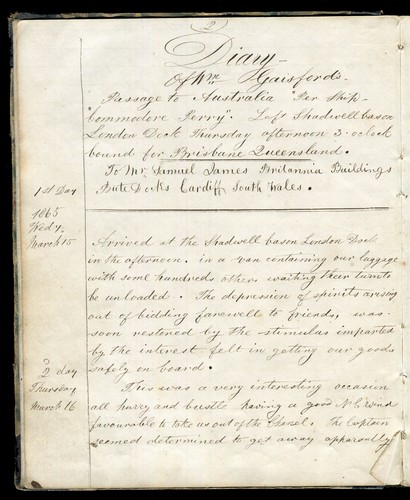 2
Diary
Of Wm Gaisford's
Passage to Australia Per Ship
"Commodore Perry". Left Shadwell bason
London Dock Thursday afternoon 3 oclock
bound for Brisbane Queensland.
To Mr. Samuel James Britannia Buildings
Bute Docks Cardiff South Wales.
1st Day
1865
Wedy
March 15
Arrived at the Shadwell bason London Dock
in the afternoon. in a van containing our luggage
with some hundreds others waiting their turn to
be unloaded. The depression of spirits arising
out of bidding farewell to friends, was
soon restored by the stimulus imparted
by the interest felt in getting our goods
safely on board.
2 day
Thursday
March 16
This was a very interesting occasion
all hurry and bustle having a good N.E. wind
favourable to take us out of the Chanel. The Captain
seemed determined to get away apparantly